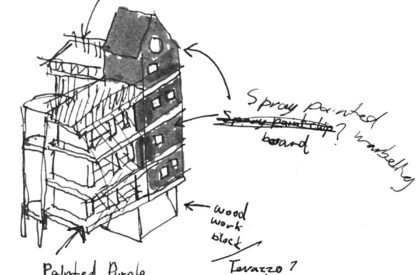 Spray painted
Spray paint chip?
board
marbelling
wood
work
block
Terazzo?
Painted Purple